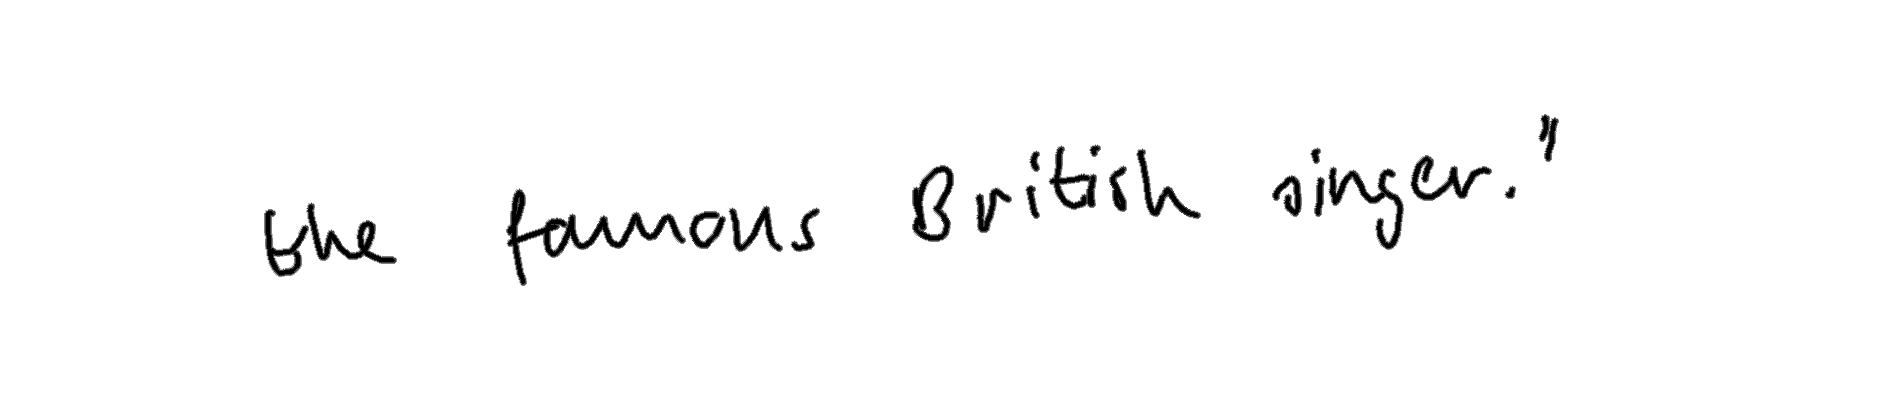 the famous British singer."